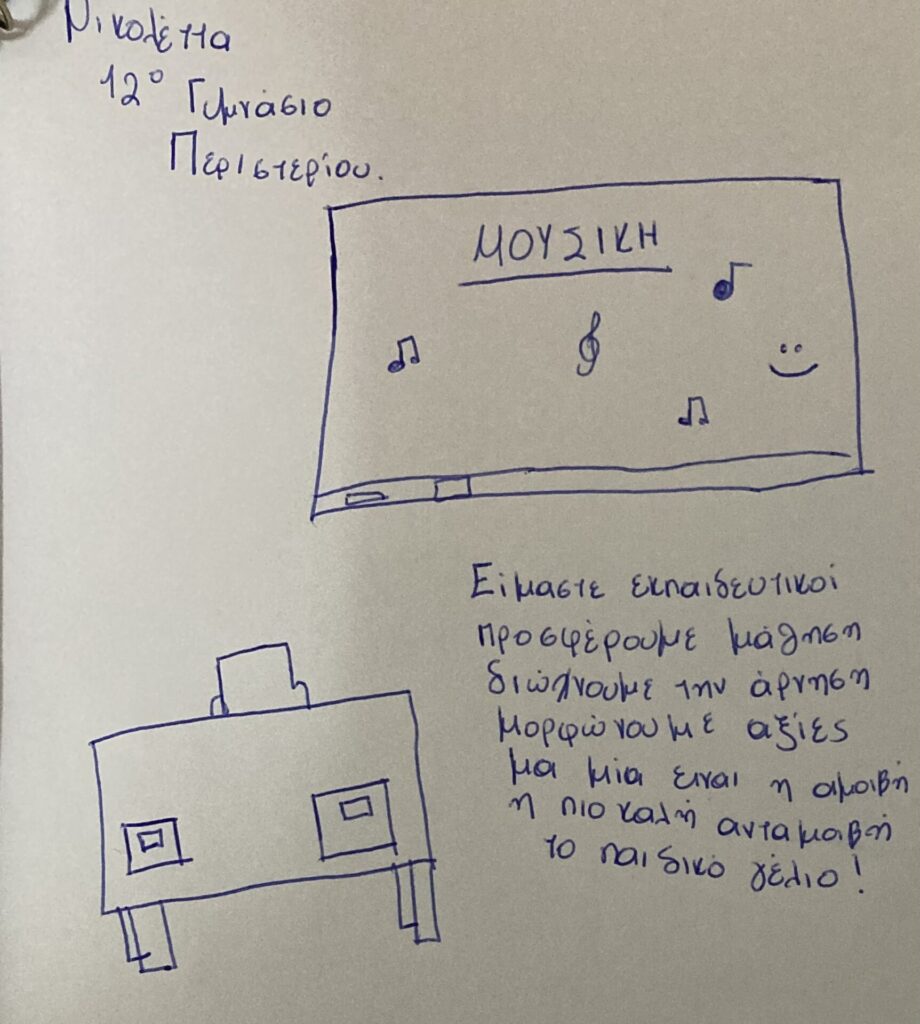 Νικολέττα
12° Γυμνάσιο
Περιστερίου.
ΜΟΥΣΙΚΗ
Είμαστε εκπαιδευτικοί
προσφέρουμε μάθηση
διώχνουμε την άρνηση
μορφώνουμε αξίες
μα μία ειναι η αμοιβή
η πιο καλή ανταμοιβή
το παιδικό γέλιο!